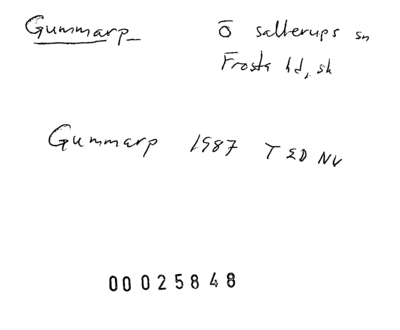 Gummarp Ö Sallerups sn
Frosta hd, sk
Gummarp 1987 T ED NV
00025848